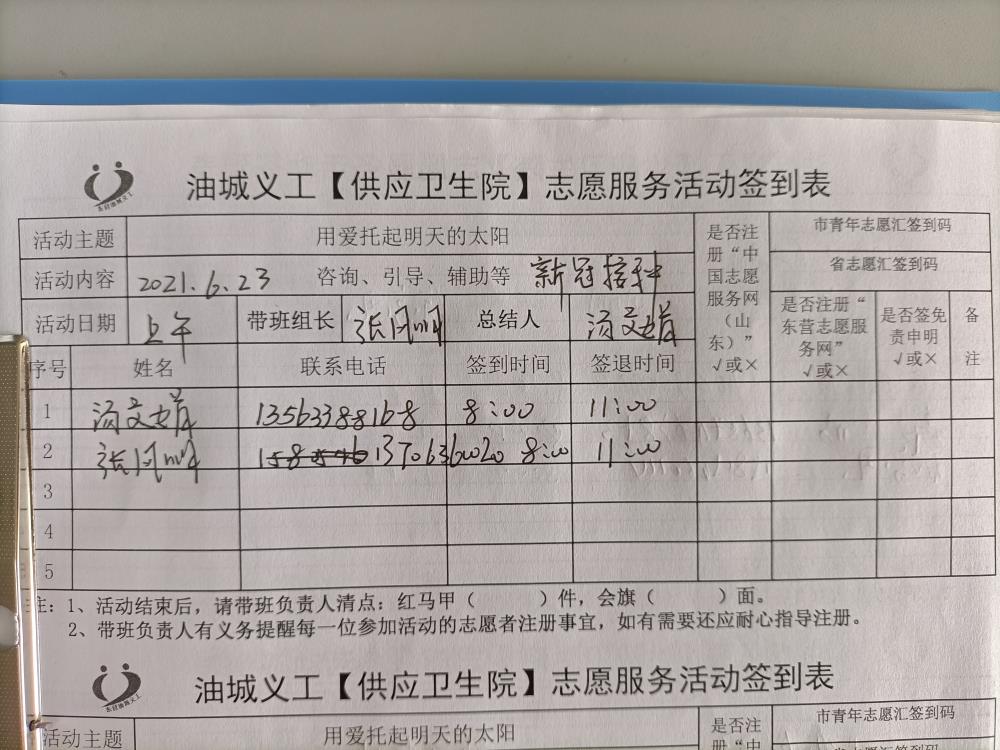 油城义工【供应卫生院】志愿服务活动签到表
活动主题 用爱托起明天的太阳 是否注册“中国志愿服务网（山东）”√或× 市青年志愿汇签到码
省志愿汇签到码
活动内容 2021.6.23 咨询、引导、辅助等 新冠接种
活动日期 上午 带班组长 张凤 总结人 汤文 是否注册“东营志愿服务网”√或× 是否签免责申明√或× 备注
序号 姓名 联系电话 签到时间 签退时间
1 汤文 13563388168 8:00 11:00
2 张凤 13706360020 8:00 11:00
3
4
5
注：1、活动结束后，请带班负责人清点：红马甲（ ）件，会旗（ ）面。
2、带班负责人有义务提醒每一位参加活动的志愿者注册事宜，如有需要还应耐心指导注册。
油城义工【供应卫生院】志愿服务活动签到表
活动主题 用爱托起明天的太阳 是否注册“中 市青年志愿汇签到码